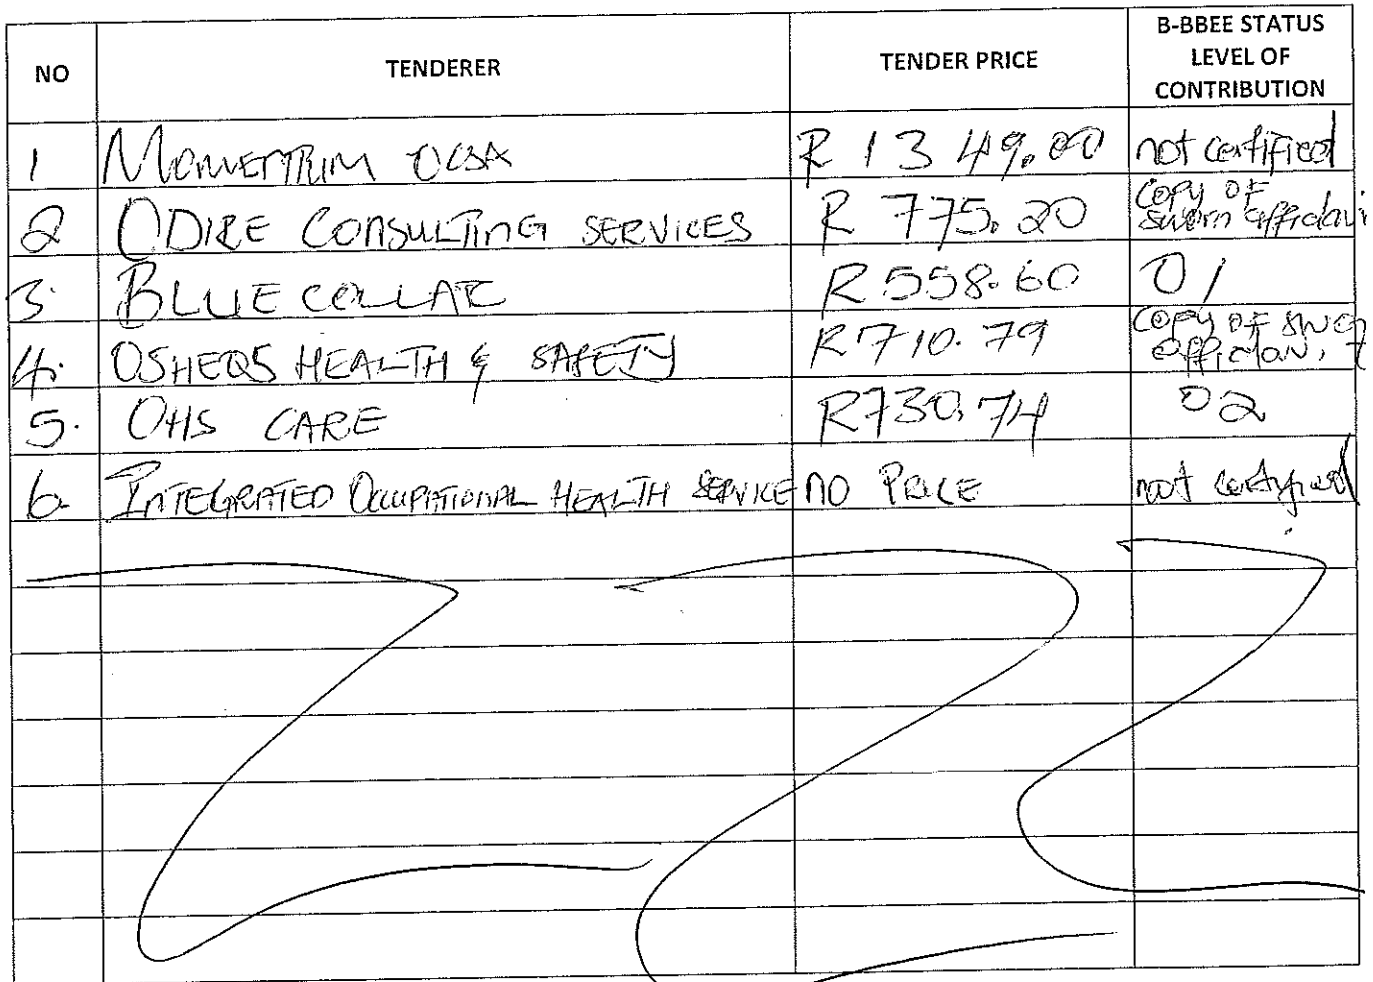 NO TENDERER TENDER PRICE B-BBEE STATUS
LEVEL OF
CONTRIBUTION
1 R 1349.00 not certified
2 ODIRE CONSULTING SERVICES R 775.20 Copy of
sworn affidavi
3. BLUE COLLAR R558.60 01
4. OSHEQS HEALTH & SAFETY R710.79 Copy of
5. OHS CARE R730.74 02
6. INTEGRATED OCCUPATIONAL HEALTH SERVICE NO PRICE not certified